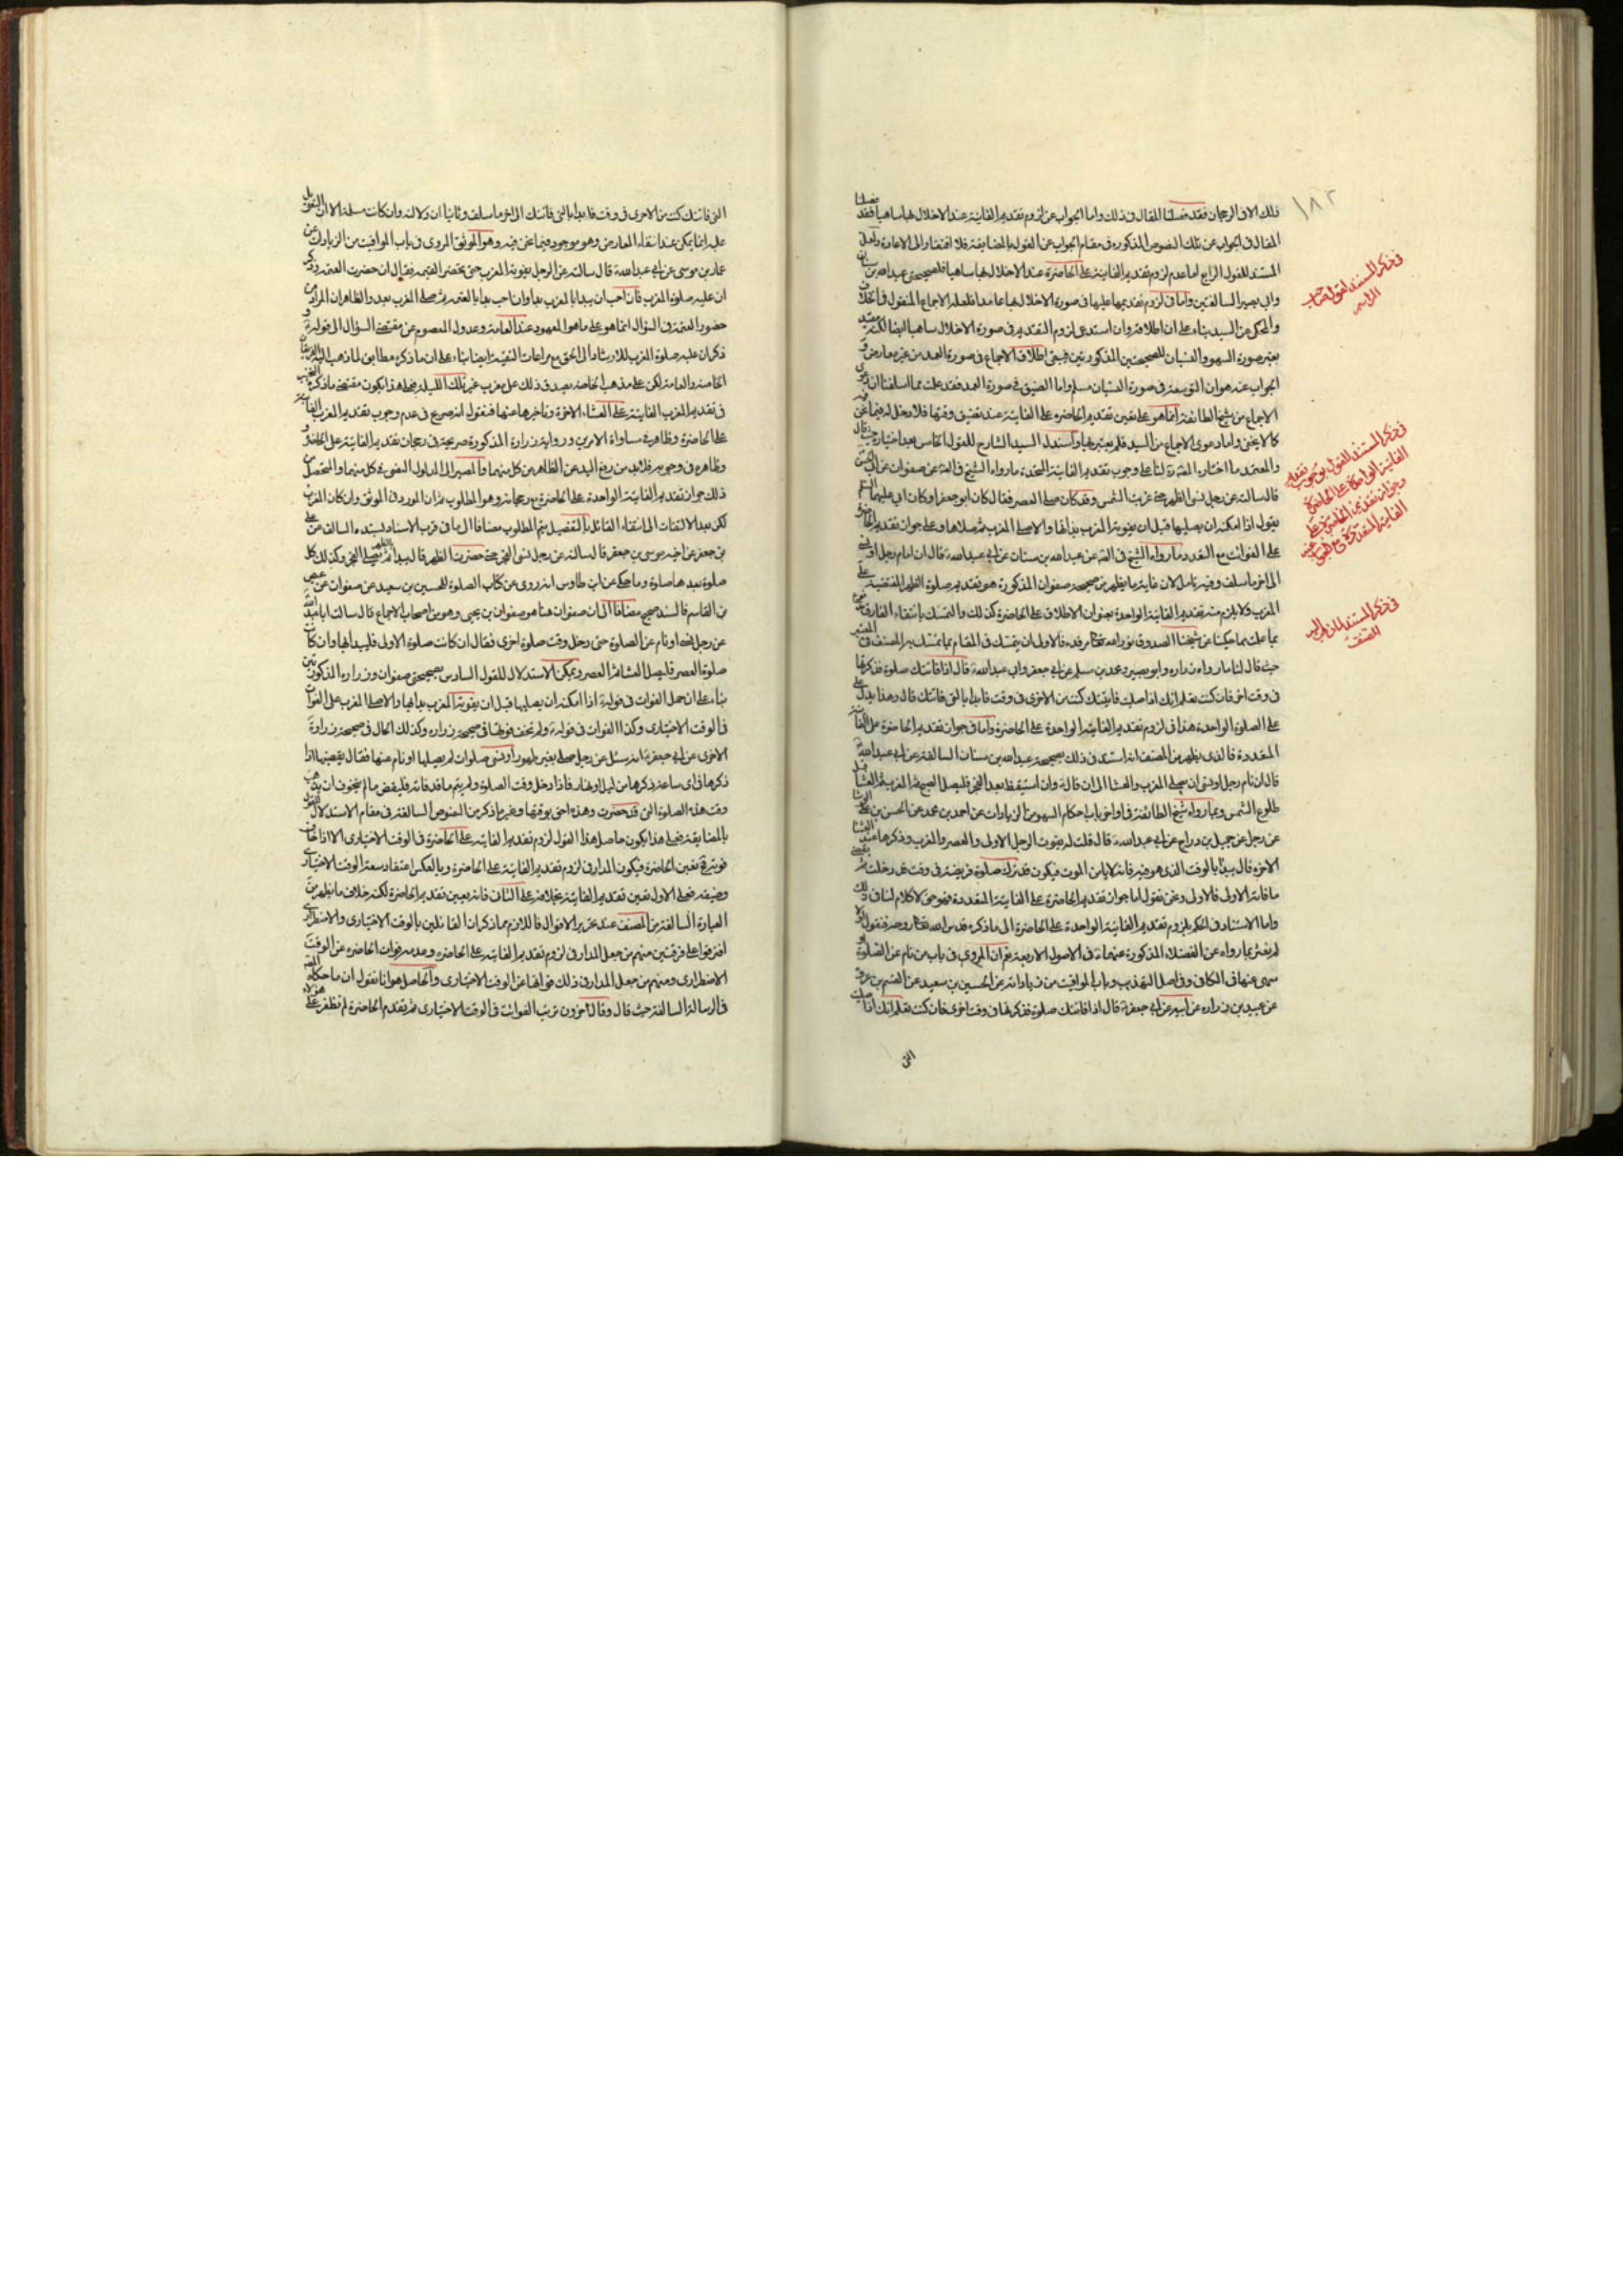 ١٨٢
ذلك الان الرجحان فقد فصلنا المقال فى ذلك واما الجواب عن لزوم تقديم الفايتة عند الاخلال بها ساهيا فقد
المقال فى الجواب عن تلك النصوص المذكورة فى مقام الجواب عن القول بالمضايقة فلا افتقار الى الاعادة ولعل
المستند للقول الرابع اما عدم لزوم تقديم الفايتة على الحاضرة عند الاخلال بها ساهيا فلصحيحتى عبد الله بن
وابى بصير السالفتين واما فى لزوم تقديمها عليها فى صورة الاخلال بها عامدا فلعله الاجماع المنقول فى
والمحكى عن السيد بناء على ان اطلاقه وان استدعى لزوم التقديم فى صورة الاخلال ساهيا ايضا لكنه
بغير صورة السهو والنسيان للصحيحتين المذكورتين فيبقى اطلاق الاجماع فى صورة العمد من غير معارض
الجواب عنه هو ان التوسعة فى صورة النسيان مسلم واما الضيق فى صورة العمد فقد علمت مما اسلفنا ان
الاجماع من شيخ الطائفة انما هو على تعين تقديم الحاضرة على الفايتة عند تضيق وقتها فلا دخل له فيما نحن
كما لا يخفى واما دعوى الاجماع من السيد فلم يعتبر بها واستدل السيد الشارح للقول الخامس بعد اختياره حيث قال
والمعتمد ما اختاره المقر لنا على وجوب تقديم الفايتة المتحدة ما رواه الشيخ فى الصحيح عن صفوان عن ابى الحسن
قال سالته عن رجل نسى الظهر حتى غربت الشمس وقد كان صلى العصر فقال كان ابو جعفر او كان ابى عليهما السلم
يقول اذا امكنه ان يصليها قبل ان يفوته المغرب بدأ بها والا صلى المغرب ثم صلاها وعلى جواز تقديم
على الفوائت مع التعدد ما رواه الشيخ فى الصحيح عن عبد الله بن سنان عن ابى عبد الله قال ان نام رجل او نسى
الى اخر ما سلف وفيه تامل لان غاية ما يظهر من صحيحة صفوان المذكورة هو تقديم صلوة الظهر المقتضية على
المغرب ولا يلزم منه تقديم الفايتة الواحدة بعنوان الاطلاق على الحاضرة كذلك والتمسك بانتفاء الفارق
بما علمت مما حكينا عن شيخنا الصدوق نور الله مرقده فالاولى ان يتمسك فى المقام بما تمسك به المصنف فى المعتبر
حيث قال لنا ما رواه زرارة وابو بصير ومحمد بن مسلم عن ابى جعفر وابى عبد الله قال اذا فاتتك صلوة فذكرتها
فى وقت اخرى فان كنت تعلم انك اذا صليت فايتتك كنت من الاخرى فى وقت فابدأ بالتى فاتتك قال وهذا يدل على
على الصلوة الواحدة هذا فى لزوم تقديم الفايتة الواحدة على الحاضرة واما فى جواز تقديم الحاضرة على
المتعددة فالذى يظهر من المصنف انه استند فى ذلك بصحيحة عبد الله بن سنان السالفة عن ابى عبد الله
قال ان نام رجل او نسى ان يصلى المغرب والعشا الى ان قال وان استيقظ بعد الفجر فليصل الصبح ثم المغرب ثم العشا قبل
طلوع الشمس وبما رواه شيخ الطائفة فى اواخر باب احكام السهو من الزيادات عن احمد بن محمد عن الحسن بن على
عن رجل عن جميل بن دراج عن ابى عبد الله قال قلت له يفوت الرجل الاولى والعصر والمغرب وذكرها عند العشا
الاخرة قال يبدأ بالوقت الذى هو فيه فانه لا يامن الموت فيكون قد ترك صلوة فريضة فى وقت قد دخلت ثم يقضى
ما فاته الاولى فالاولى ونحن نقول اما جواز تقديم الحاضرة على الفايتة المتعددة فهو حق لا كلام لنا فى ذلك
واما الاستناد فى الحكم بلزوم تقديم الفايتة الواحدة على الحاضرة الى ما ذكره قدس الله تعالى روحه فنقول
لم نعثر بما رواه عن الفضلاء المذكورة عنهما فى الاصول الاربعة نعم ان المروى فى باب من نام عن الصلوة
سهى عنها فى الكافى وفى اصل التهذيب وباب المواقيت من زياداته عن الحسين بن سعيد عن القسم بن عروة
عن عبيد بن زرارة عن ابيه عن ابى جعفر قال اذا فاتتك صلوة فذكرتها فى وقت اخرى فان كنت تعلم انك اذا صليت
التى
فى ذكر المستند لقول
الرابع
فى ذكر المستند للقول بوجوب تقديم
الفايتة الواحدة على الحاضرة
وجواز تقديم الحاضرة على
الفايتة المتعددة
فى ذكر المستند لما ذهب اليه
المصنف
التى فاتتك كنت من الاخرى فى وقت فابدا بالتى فاتتك الى اخر ما سلف وثانيا ان دلالته وان كانت مسلمة الا ان
عليه انما يمكن عند انتفاء المعارض وهو موجود فيما نحن فيه وهو الموثق المروى فى باب المواقيت من الزيادات عن
عمار بن موسى عن ابى عبد الله قال سالته عن الرجل يفوته المغرب حتى يحضر العتمة فقال ان حضرت العتمة وذكر
ان عليه صلوة المغرب فان احب ان يبدا بالمغرب بدا وان احب بدا بالعتمة ثم صلى المغرب بعد والظاهر ان المراد من
حضور العتمة فى السؤال انما هو على ما هو المعهود عند العامة وعدول المعصوم عن مقتضى السؤال الى قوله
ذكر ان عليه صلوة المغرب للارشاد الى الحق مع مراعات التقية ايضا بناء على ان ما ذكره مطابق لما ذهب اليه
الخاصة والعامة لكن على مذهب الخاصة يصدق ذلك على مغرب غير تلك الليلة فعلى هذا يكون مقتضى ما ذكره
فى تقديم المغرب الفايتة على العشاء الاخرة وتاخرها عنها فنقول انه صريح فى عدم وجوب تقديم المغرب
على الحاضرة وظاهر فى مساواة الامرين ورواية زرارة المذكورة صريحة فى رجحان تقديم الفايتة على الحاضرة
وظاهره فى وجوبه فلابد من رفع اليد عن الظاهر من كل منهما والمصير الى المدلول النصى فى كل منهما والمتحصل من
ذلك جواز تقديم الفايتة الواحدة على الحاضرة ورجحانه وهو المطلوب ثم ان المورد فى الموثق وان كان المغرب
لكن بعد الالتفات الى انتفاء القائل بالتفصيل يتم المطلوب مضافا الى ما فى قرب الاسناد لسنده السالف عن على
بن جعفر عن اخيه موسى بن جعفر قال سالته عن رجل نسى الفجر حتى حضرت الظهر قال يبدأ بالظهر ثم يصلى الفجر وكذلك كل
صلوة بعدها صلوة وما حكى عن ابن طاوس انه روى عن كتاب الصلوة للحسين بن سعيد عن صفوان عن عيص
بن القاسم فالسند صحيح مضافا الى ان صفوان هنا هو صفوان بن يحيى وهو من اصحاب الاجماع قال سالت ابا عبد الله
عن رجل نسى او نام عن الصلوة حتى دخل وقت صلوة اخرى فقال ان كانت صلوة الاولى فليبدأ بها وان كانت
صلوة العصر فليصل العشا ثم العصر ويمكن الاستدلال للقول السادس بصحيحتى صفوان وزرارة المذكورتين
بناء على ان حمل الفوات فى قوله اذا امكنه ان يصليها قبل ان يفوته المغرب بدا بها والا صلى المغرب على الفوات
فى الوقت الاختيارى وكذا الفوات فى قوله ولم تخف فوتها فى صحيحة زرارة وكذلك الحال فى صحيحة زرارة
الاخرى عن ابى جعفر انه سئل عن رجل صلى بغير طهور او نسى صلوات لم يصلها او نام عنها فقال يقضيها اذا
ذكرها فى اى ساعة ذكرها من ليل او نهار فاذا دخل وقت الصلوة ولم يتم ما قد فاته فليقض ما لم يتخوف ان يذهب
وقت هذه الصلوة التى قد حضرت وهذه احق بوقتها وغير ما ذكر من النصوص السالفة فى مقام الاستدلال للقول
بالمضايقة فعلى هذا يكون حاصل هذا القول لزوم تقديم الفايتة على الحاضرة فى الوقت الاختيارى الا اذا خاف
فوته فح تعين الحاضرة فيكون المدار فى لزوم تقديم الفايتة على الحاضرة وبالعكس اعتقاد سعة الوقت الاختيارى
وضيقه فعلى الاول تعين تقديم الفايتة بخلافه على الثانى فانه يتعين تقديم الحاضرة لكنه خلاف ما يظهر من
العبارة السالفة من المصنف عند تحرير الاقوال فاللازم مما ذكر ان القائلين بالوقت الاختيارى والاضطرارى
افترقوا على فرقتين منهم من جعل المدار فى لزوم تقديم الفايتة على الحاضرة وعدمه فوات الحاضرة عن الوقت
الاضطرارى ومنهم من جعل المدار فى ذلك فواتها عن الوقت الاختيارى والحاصل هو انا نقول ان ما حكاه
فى الرسالة السالفة حيث قال وقال اخرون ترتب الفوائت فى الوقت الاختيارى ثم تقدم الحاضرة لم نظفر على